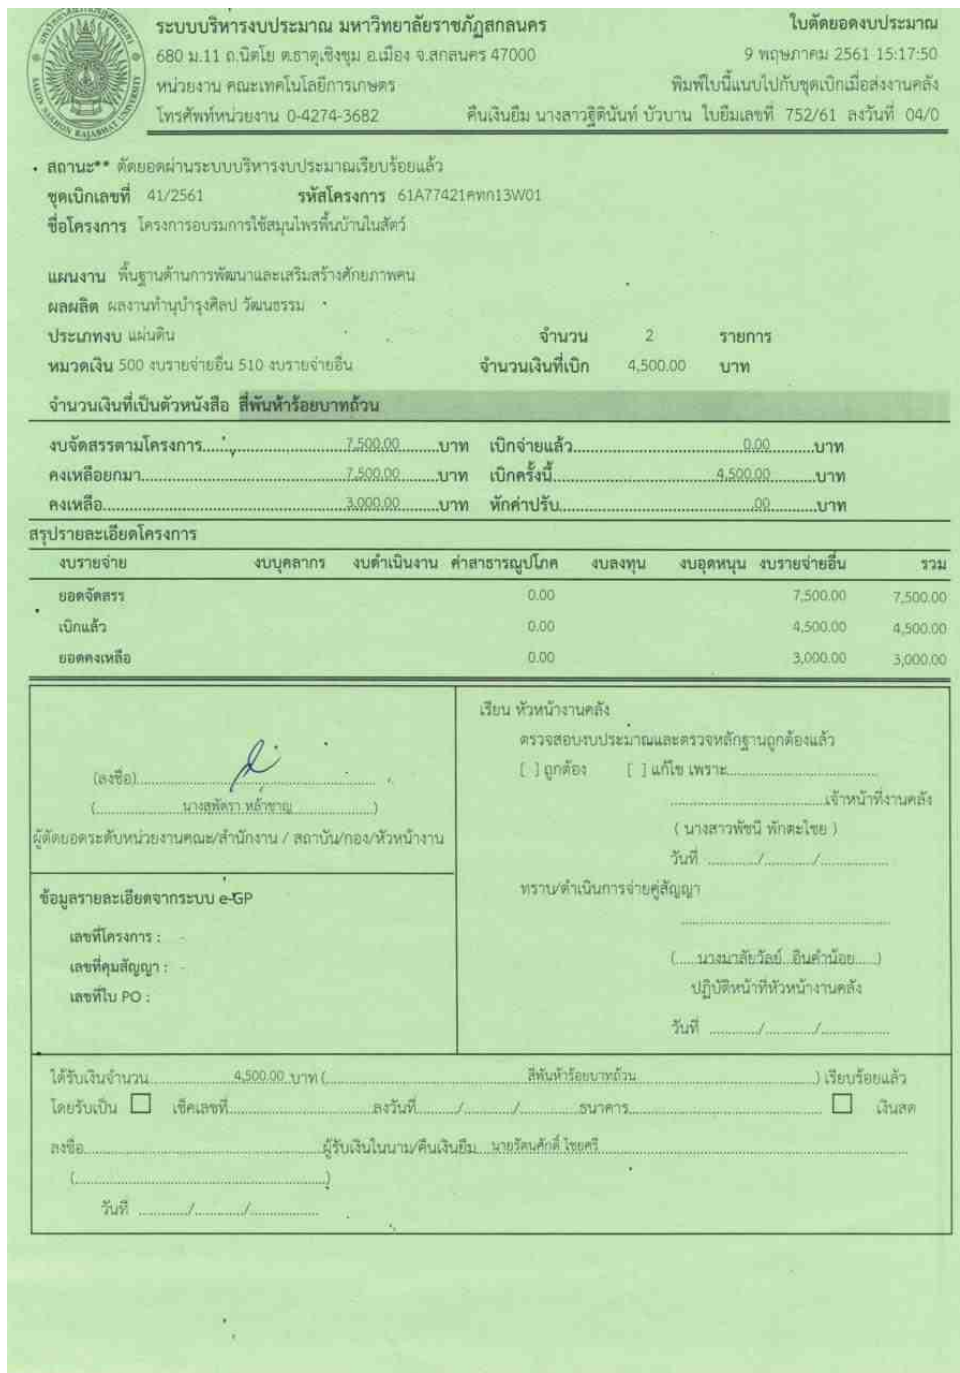 ระบบบริหารงบประมาณ มหาวิทยาลัยราชภัฏสกลนคร ใบตัดยอดงบประมาณ
680 ม.11 ถ.นิตโย ต.ธาตุเชิงชุม อ.เมือง จ.สกลนคร 47000 9 พฤษภาคม 2561 15:17:50
หน่วยงาน คณะเทคโนโลยีการเกษตร พิมพ์ใบนี้แนบไปกับชุดเบิกเมื่อส่งงานคลัง
โทรศัพท์หน่วยงาน 0-4274-3682 คืนเงินยืม นางสาวฐิตินันท์ บัวบาน ใบยืมเลขที่ 752/61 ลงวันที่ 04/0
SAKON NAKHON RAJABHAT UNIVERSITY
สถานะ** ตัดยอดผ่านระบบบริหารงบประมาณเรียบร้อยแล้ว
ชุดเบิกเลขที่ 41/2561 รหัสโครงการ 61A77421คทก13W01
ชื่อโครงการ โครงการอบรมการใช้สมุนไพรพื้นบ้านในสัตว์
แผนงาน พื้นฐานด้านการพัฒนาและเสริมสร้างศักยภาพคน
ผลผลิต ผลงานทำนุบำรุงศิลป วัฒนธรรม
ประเภทงบ แผ่นดิน จำนวน 2 รายการ
หมวดเงิน 500 งบรายจ่ายอื่น 510 งบรายจ่ายอื่น จำนวนเงินที่เบิก 4,500.00 บาท
จำนวนเงินที่เป็นตัวหนังสือ สี่พันห้าร้อยบาทถ้วน
งบจัดสรรตามโครงการ 7,500.00 บาท เบิกจ่ายแล้ว 0.00 บาท
คงเหลือยกมา 7,500.00 บาท เบิกครั้งนี้ 4,500.00 บาท
คงเหลือ 3,000.00 บาท หักค่าปรับ .00 บาท
สรุปรายละเอียดโครงการ
งบรายจ่าย งบบุคลากร งบดำเนินงาน ค่าสาธารณูปโภค งบลงทุน งบอุดหนุน งบรายจ่ายอื่น รวม
ยอดจัดสรร 0.00 7,500.00 7,500.00
เบิกแล้ว 0.00 4,500.00 4,500.00
ยอดคงเหลือ 0.00 3,000.00 3,000.00
(ลงชื่อ)
(นางสุพัตรา หล้าชาญ)
ผู้ตัดยอดระดับหน่วยงานคณะ/สำนักงาน / สถาบัน/กอง/หัวหน้างาน
ข้อมูลรายละเอียดจากระบบ e-GP
เลขที่โครงการ : -
เลขที่คุมสัญญา : -
เลขที่ใบ PO :
เรียน หัวหน้างานคลัง
ตรวจสอบงบประมาณและตรวจหลักฐานถูกต้องแล้ว
[ ] ถูกต้อง [ ] แก้ไข เพราะ
เจ้าหน้าที่งานคลัง
( นางสาวพัชนี พักตะไชย )
วันที่ / /
ทราบ/ดำเนินการจ่ายคู่สัญญา
(นางมาลัยวัลย์ อินคำน้อย)
ปฏิบัติหน้าที่หัวหน้างานคลัง
วันที่ / /
ได้รับเงินจำนวน 4,500.00 บาท ( สี่พันห้าร้อยบาทถ้วน ) เรียบร้อยแล้ว
โดยรับเป็น เช็คเลขที่ ลงวันที่ / / ธนาคาร เงินสด
ลงชื่อ ผู้รับเงินในนาม/คืนเงินยืม นายรัตนศักดิ์ ไชยศรี
( )
วันที่ / /